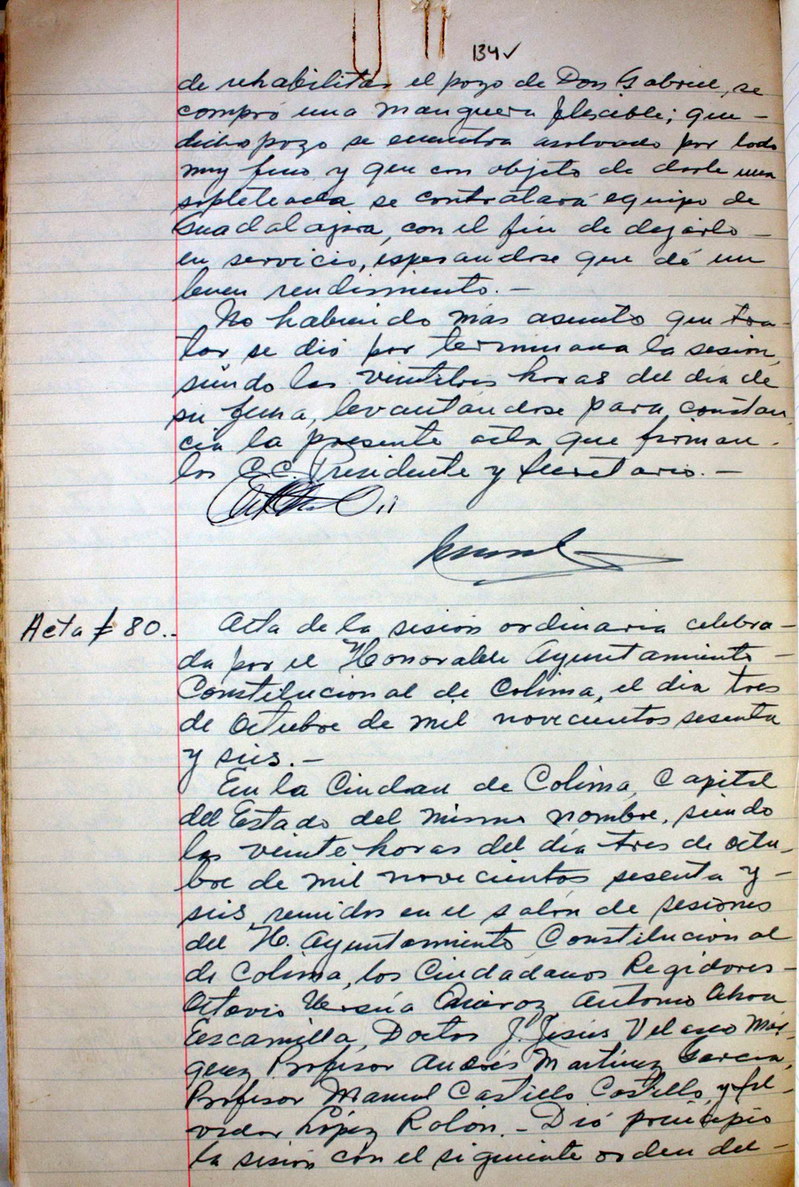 134✓
de rehabilitar el pozo de Don Gabriel, se
compró una manguera flexible; que -
dicho pozo se encuentra asolvado por lodo
muy fino y que con objeto de darle una
sopleteada se contratará equipo de
Guadalajara, con el fin de dejarlo -
en servicio, esperandose que dé un
buen rendimiento. -
No habiendo más asunto que tra-
tar se dió por terminada la sesión,
siendo las veintitres horas del día de
su fecha, levantándose para constan-
cia la presente acta que firman -
los C.C. Presidente y Secretario. -
Acta # 80.- Acta de la sesión ordinaria celebra-
da por el Honorable Ayuntamiento -
Constitucional de Colima, el día tres
de Octubre de mil novecientos sesenta
y seis. -
En la Ciudad de Colima, Capital
del Estado del mismo nombre, siendo
las veinte horas del día tres de octu-
bre de mil novecientos sesenta y -
seis, reunidos en el salón de sesiones
del H. Ayuntamiento Constitucional
de Colima, los Ciudadanos Regidores -
Octavio Ursúa Antonio
Escamilla, Doctor J. Jesús Velasco Már-
quez, Profesor Andrés Martínez García,
Profesor Manuel Castillo Castillo, y Sal-
vador López Rolón. - Dió principio
la sesión con el siguiente orden del -